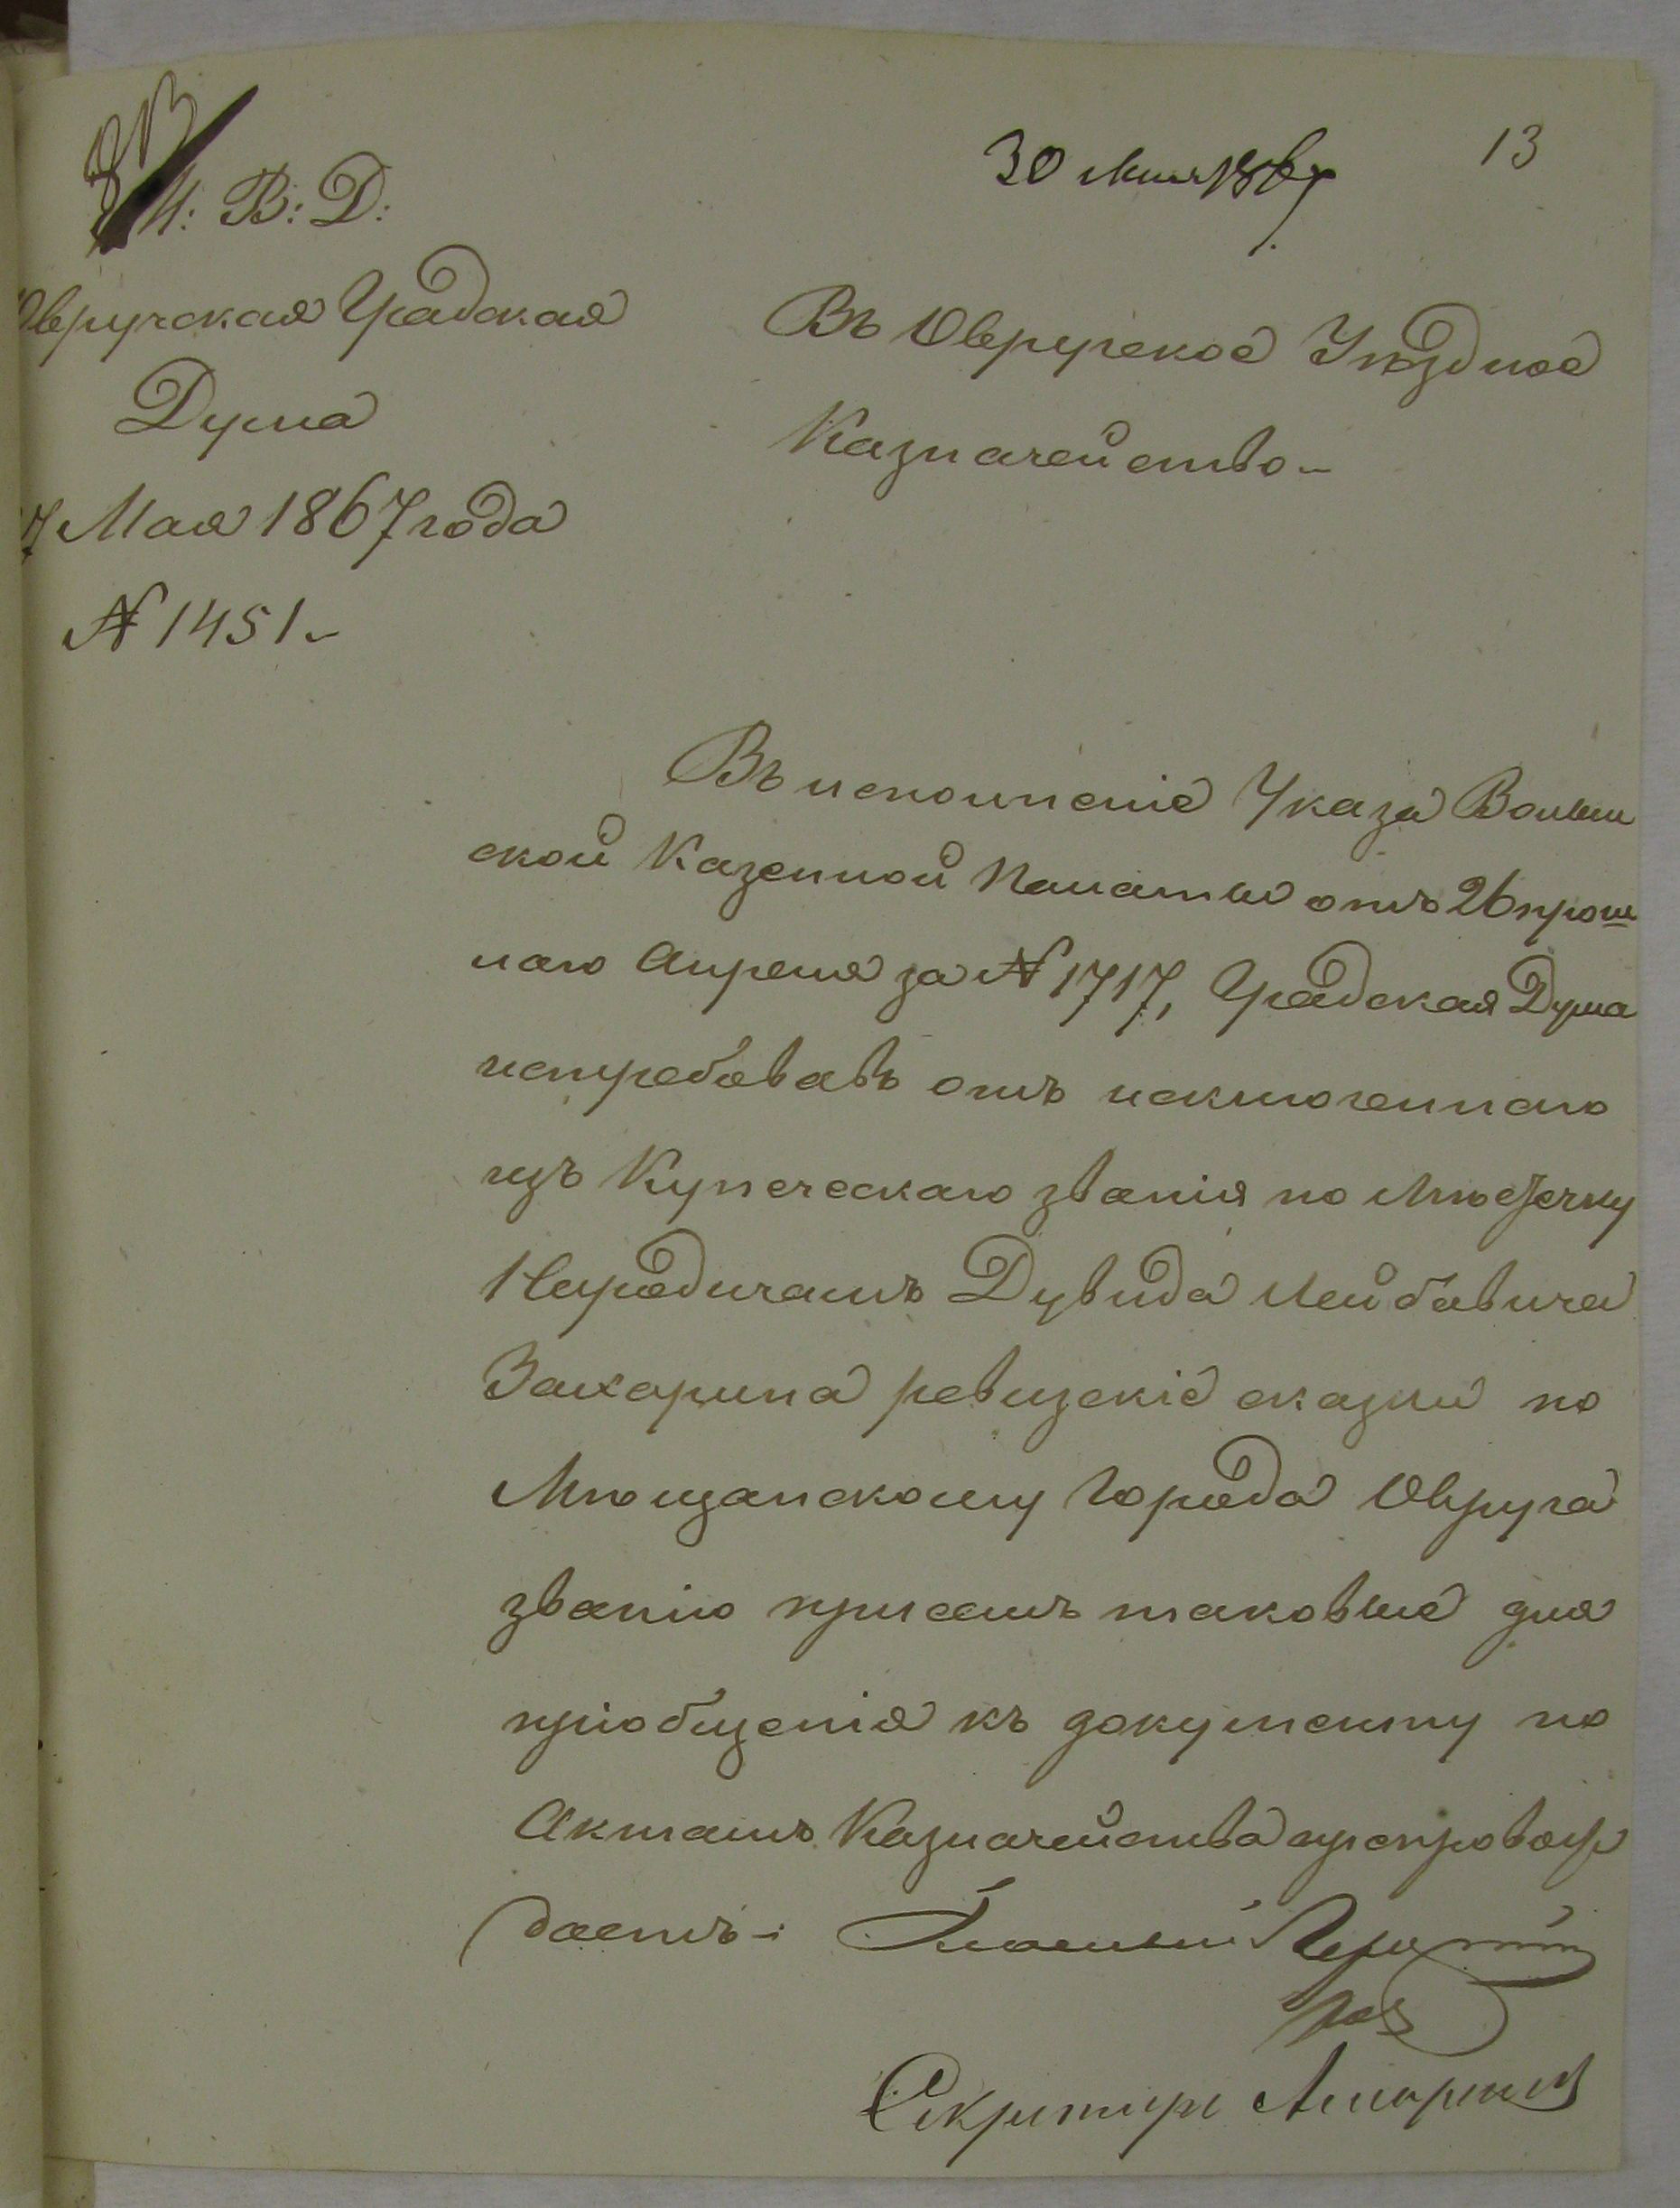 30 Мая 1867
13
М: В: Д:
Овручская Градская
Дума
Мая 1867 года
№ 1451.
Въ Овручское Уѣздное
Казначейство
Въ исполненіе Указа Волын
ской Казенной Палаты отъ 26 прош
лаго Апреля за № 1717, Градская Дума
истребовавъ отъ исключеннаго
изъ Купеческаго званія по Мѣстечку
Народичамъ Дувида Лейбовича
Захарина ревизскіе сказки по
Мѣщанскому Города Овруча
званію при семъ таковые для
пріобщенія къ документу по
Актамъ Казначейства препровож
даетъ
Гласный
Секретарь